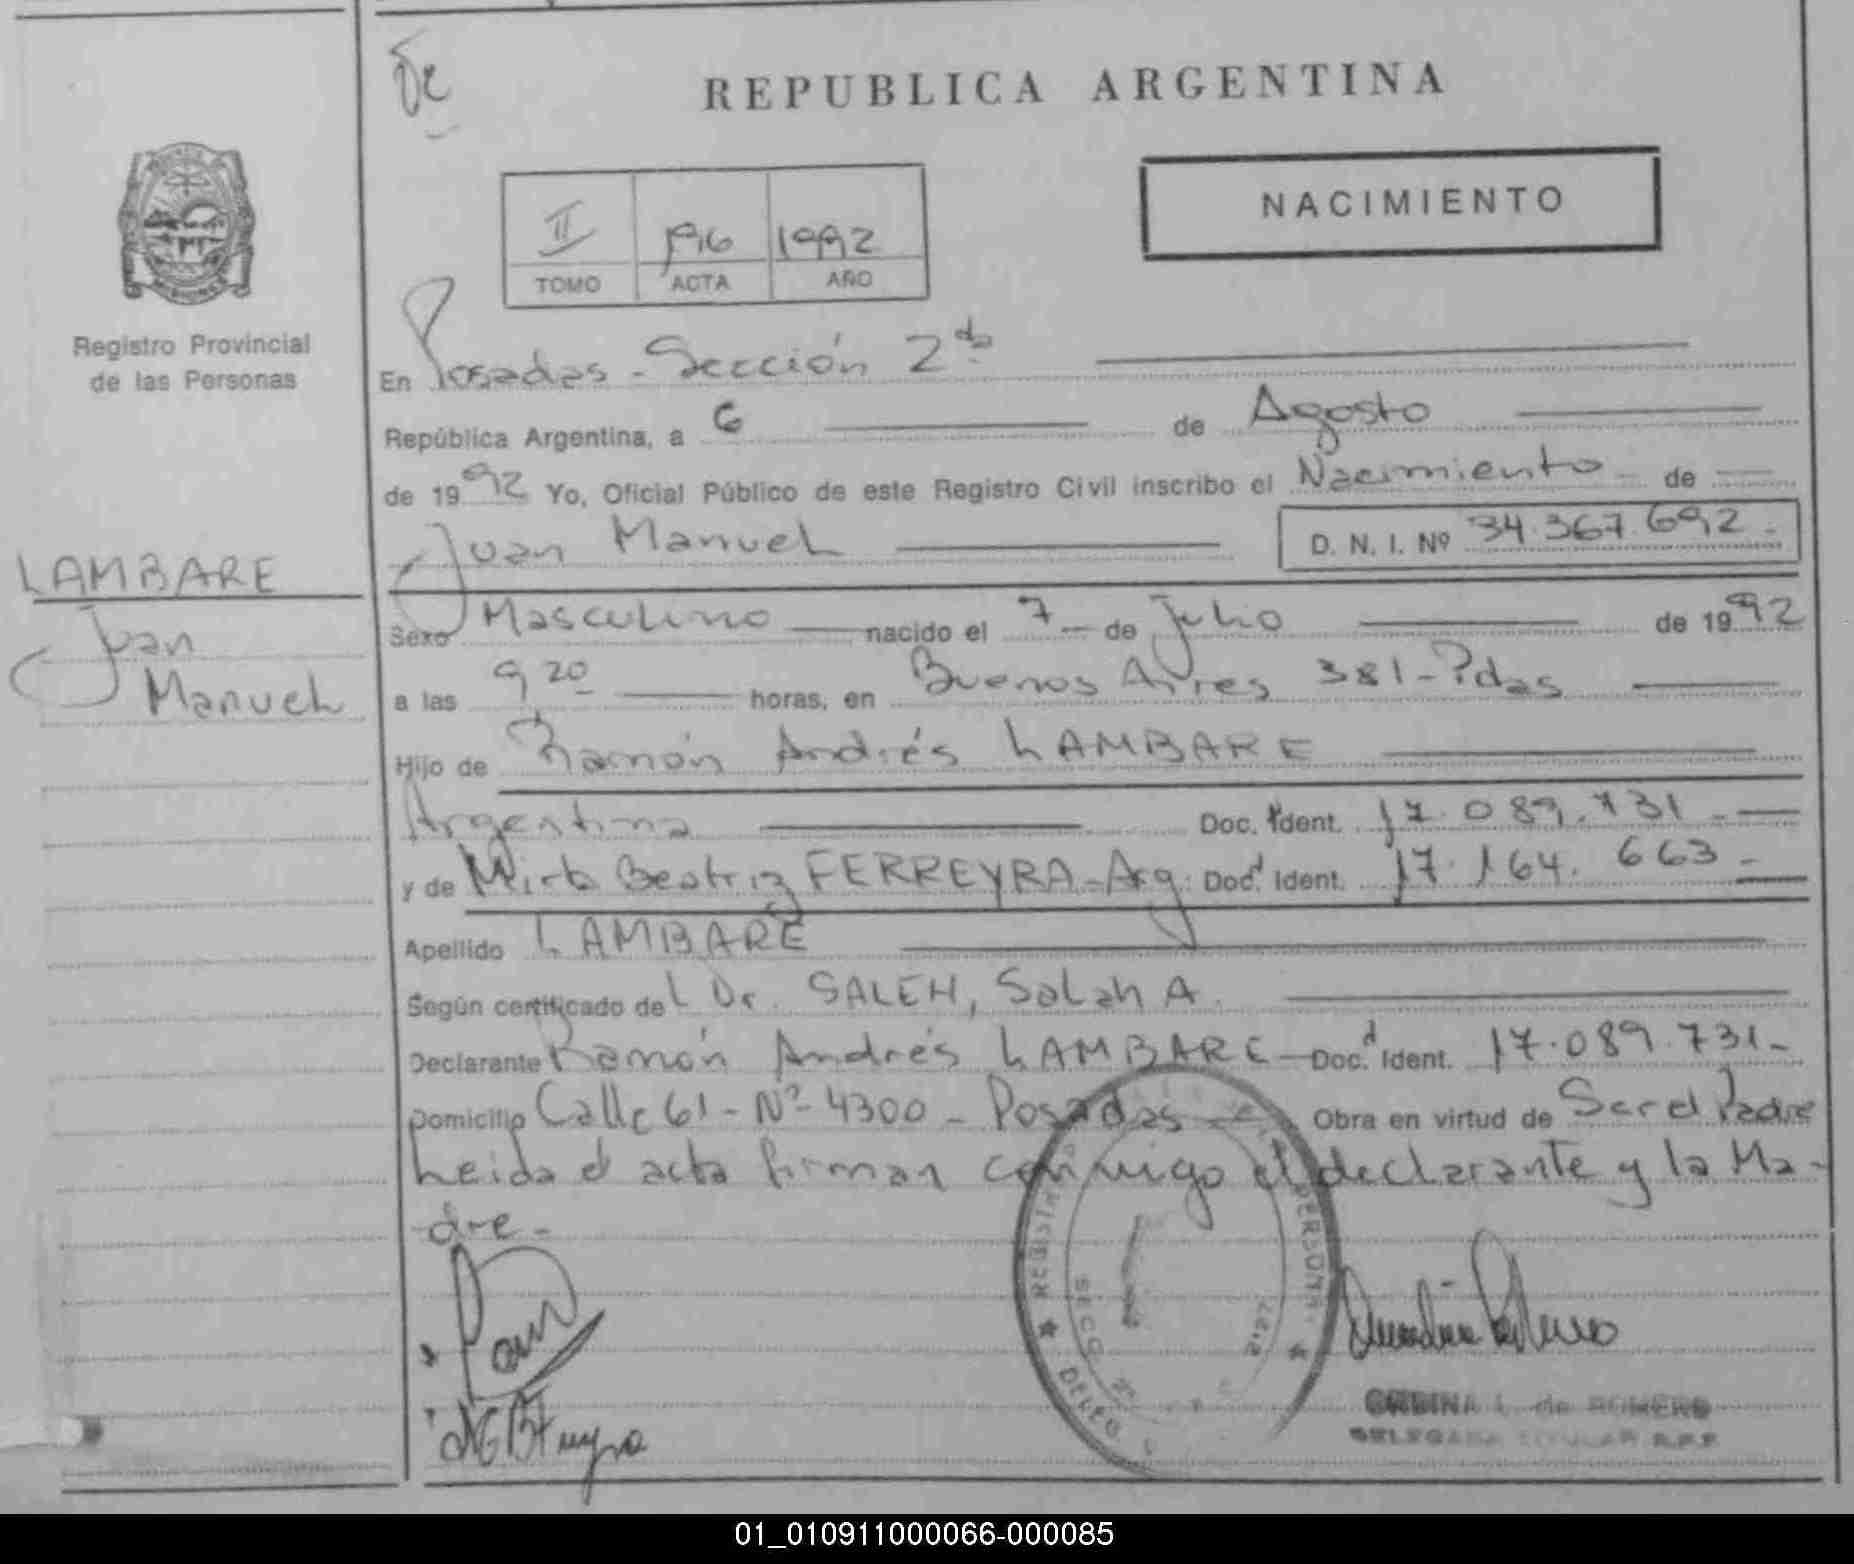 De
REPUBLICA ARGENTINA
NACIMIENTO
II 196 1992
TOMO ACTA AÑO
MISIONES
Registro Provincial
de las Personas
LAMBARE
Juan
Manuel
En Posadas - Sección 2da
República Argentina, a 6 de Agosto
de 1992 Yo, Oficial Público de este Registro Civil inscribo el Nacimiento de
Juan Manuel D. N. I. Nº 34.367.692.-
Sexo Masculino nacido el 7 de Julio de 1992
a las 9 20 horas, en Buenos Aires 381 - Pdas
Hijo de Ramón Andrés LAMBARE
Argentina Doc. Ident. 17.089.731.-
y de Mirta Beatriz FERREYRA - Arg. Docd Ident. 17.164.663 -
Apellido LAMBARE
Según certificado del Dr. SALEH, Salah A.
Declarante Ramón Andrés LAMBARE - Doc.d Ident. 17.089.731 -
Domicilio Calle 61 - Nº 4300 - Posadas - Obra en virtud de Ser el Padre
Leida el acta firman conmigo el declarante y la Ma-
dre -
REGISTRO PERSONAS
SECC
DELEG
L. de ROMERO
DELEGADA TITULAR R.P.P.
01_010911000066-000085